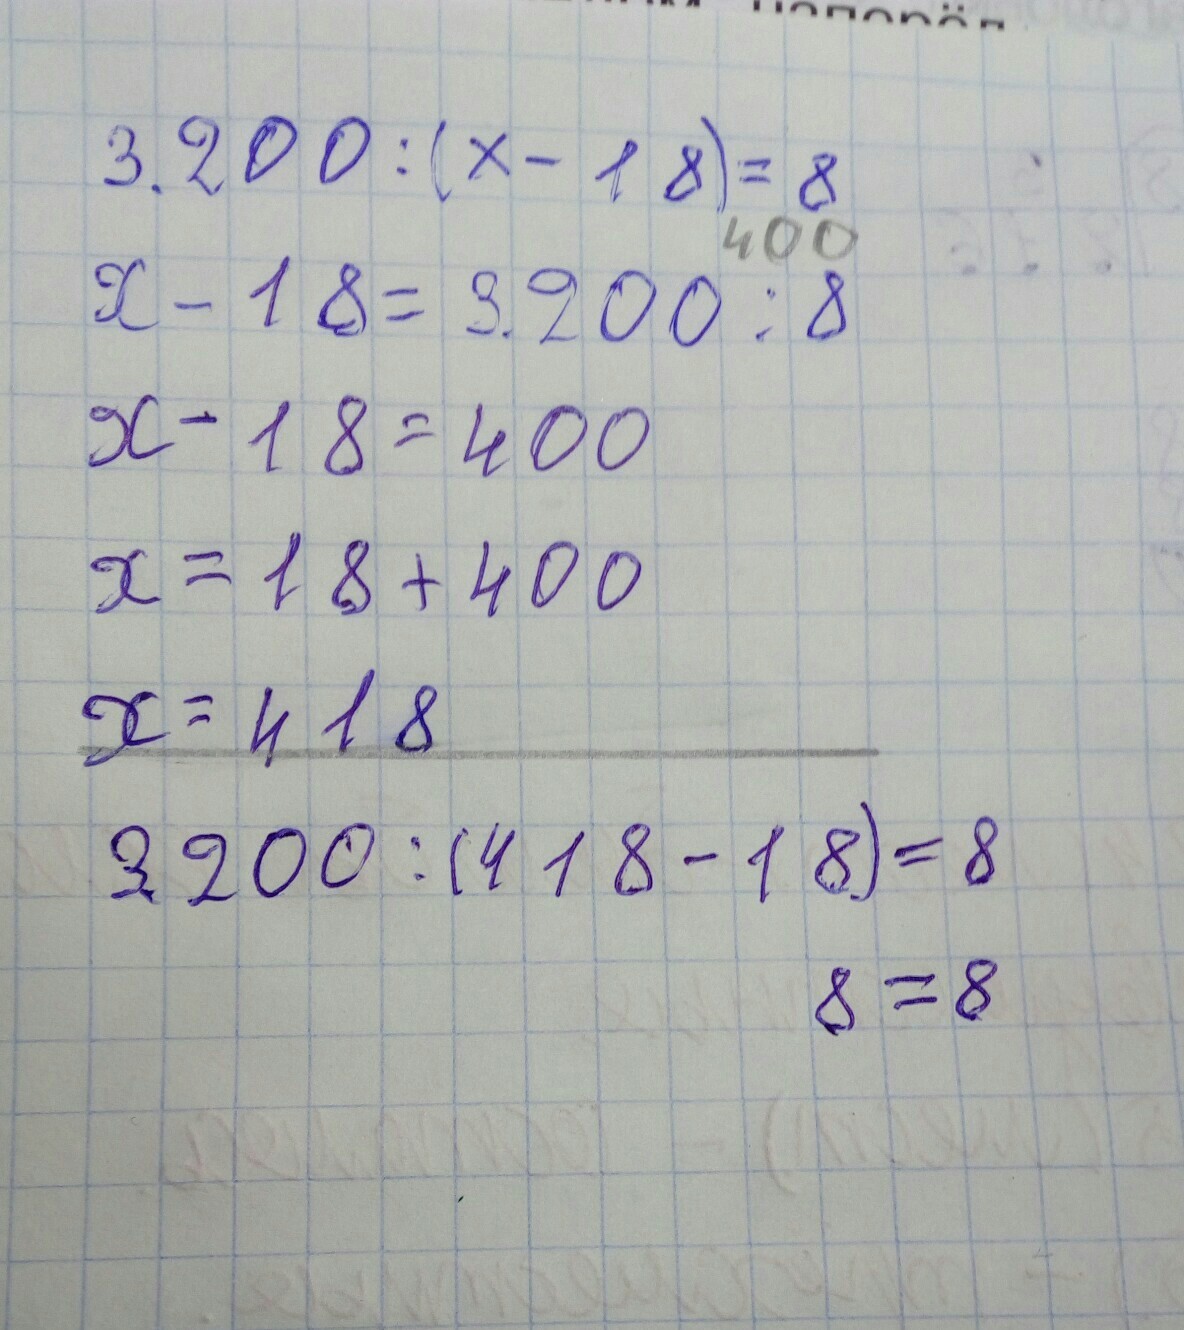 3.200:(x-18)=8
400
x-18=3.200:8
x-18=400
x=18+400
x=418
3.200:(418-18)=8
8=8